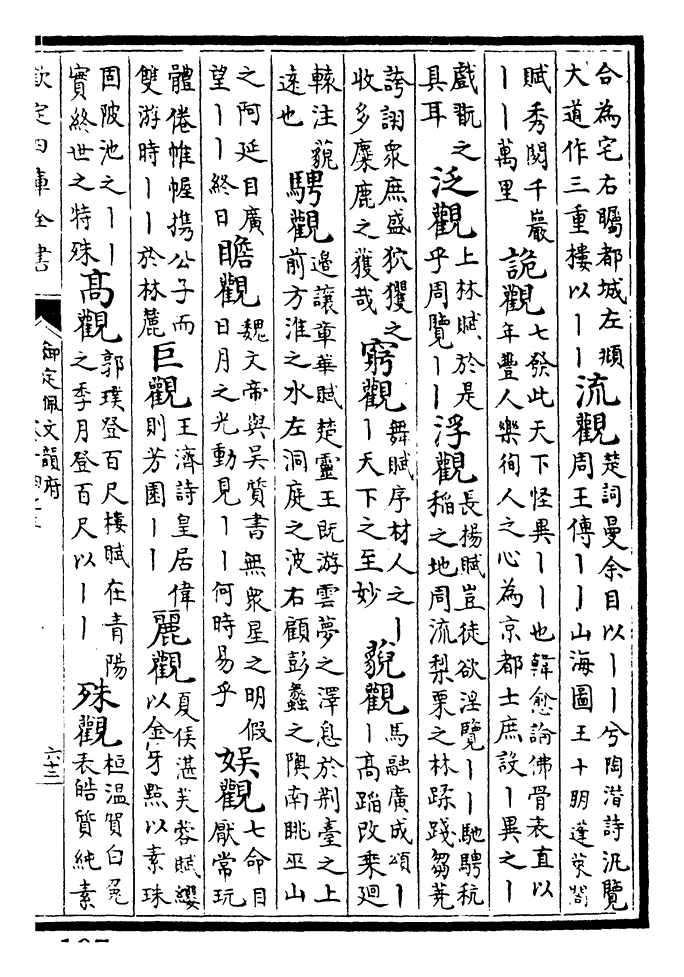 合為宅右矚都城左瀕
大道作三重樓以丨丨
流觀
楚詞曼余目以丨丨兮陶潛詩汎覽
周王傳丨丨山海圖王十朋蓬萊閣
賦秀閱千巖
丨丨萬里
詭觀
七發此天下怪異丨丨也韓愈論佛骨表直以
年豐人樂徇人之心為京都士庶設丨異之丨
戲翫之
具耳
泛觀
上林賦於是
乎周覽丨丨
浮觀
長揚賦豈徒欲淫覽丨丨馳騁秔
稻之地周流梨栗之林蹂踐芻蕘
誇詡衆庶盛狖玃之
收多麋鹿之獲哉
窮觀
舞賦序材人之丨
丨天下之至妙
貌觀
馬融廣成頌丨
丨高蹈改乗廻
轅注藐
遠也
騁觀
邉讓章華賦楚靈王既游雲夢之澤息於荆臺之上
前方淮之水左洞庭之波右顧彭蠡之隩南眺巫山
之阿延目廣
望丨丨終日
瞻觀
魏文帝與吳質書無衆星之明假
日月之光動見丨丨何時易乎
娱觀
七命目
厭常玩
體倦帷幄携公子而
雙游時丨丨於林麓
巨觀
王濟詩皇居偉
則芳園丨丨
麗觀
夏侯湛芙蓉賦纓
以金牙點以素珠
固陂池之丨丨
實終世之特殊
高觀
郭璞登百尺樓賦在青陽
之季月登百尺以丨丨
殊觀
桓温賀白兔
表皓質純素
欽定四庫全書
御定佩文韻府
六十三